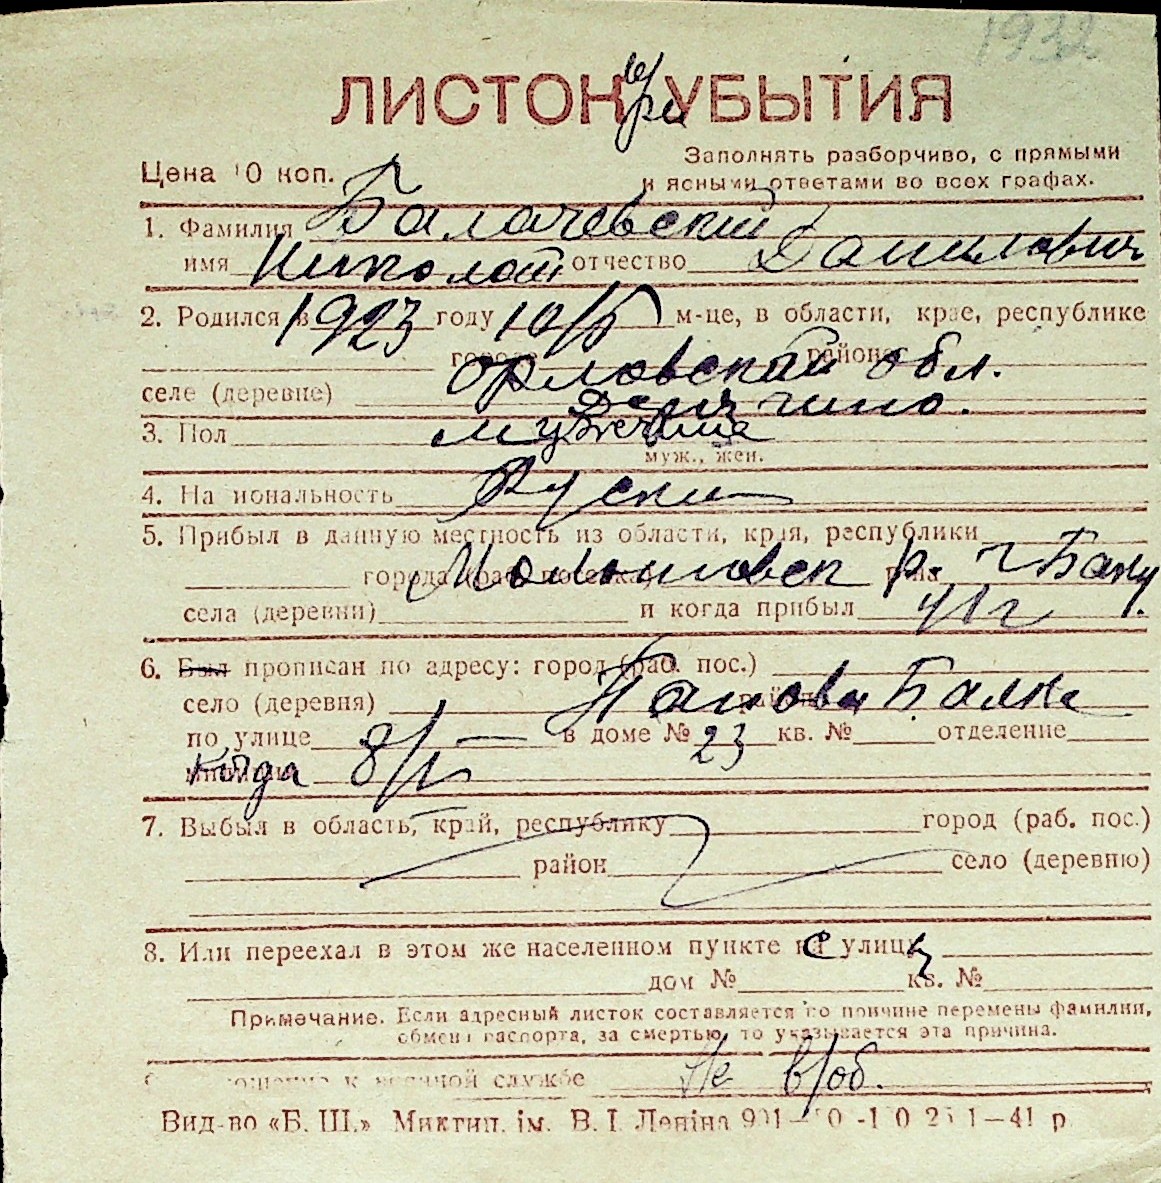 1932
ЛИСТОК УБЫТИЯ
при
Цена 10 коп.
Заполнять разборчиво, с прямыми
и ясными ответами во всех графах.
1. Фамилия Балачевский
имя Николай отчество Данилович
2. Родился в 1923 году 10/ м-це, в области, крае, республике
городе районе
Орловской обл.
селе (деревне)
3. Пол мужчина
муж., жен.
4. Национальность Руский
5. Прибыл в данную местность из области, края, республики
города (раб. поселка) р-на г Баку
села (деревни) и когда прибыл 41 г.
6. Был прописан по адресу: город (раб. пос.)
село (деревня) Панова Балка
по улице в доме № 23 кв. № отделение
милиции Когда 8/
7. Выбыл в область, край, республику город (раб. пос.)
район село (деревню)
8. Или переехал в этом же населенном пункте на улицу
дом № кв. №
Примечание. Если адресный листок составляется по причине перемены фамилии,
обмена паспорта, за смертью, то указывается эта причина.
отношение к военной службе не в/об.
Вид-во «Б. Ш.» Миктип. ім. В. І. Леніна 41 р.